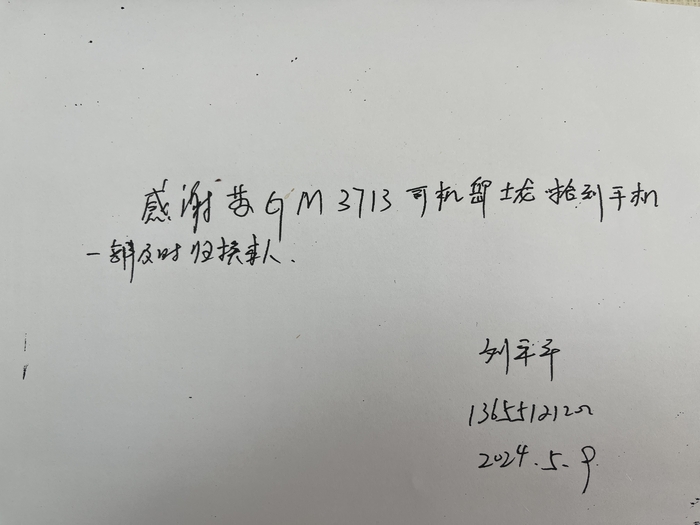 感谢苏GM3713司机 士龙抢到手机
一部及时归换本人.
刘
136551212
2024.5.9